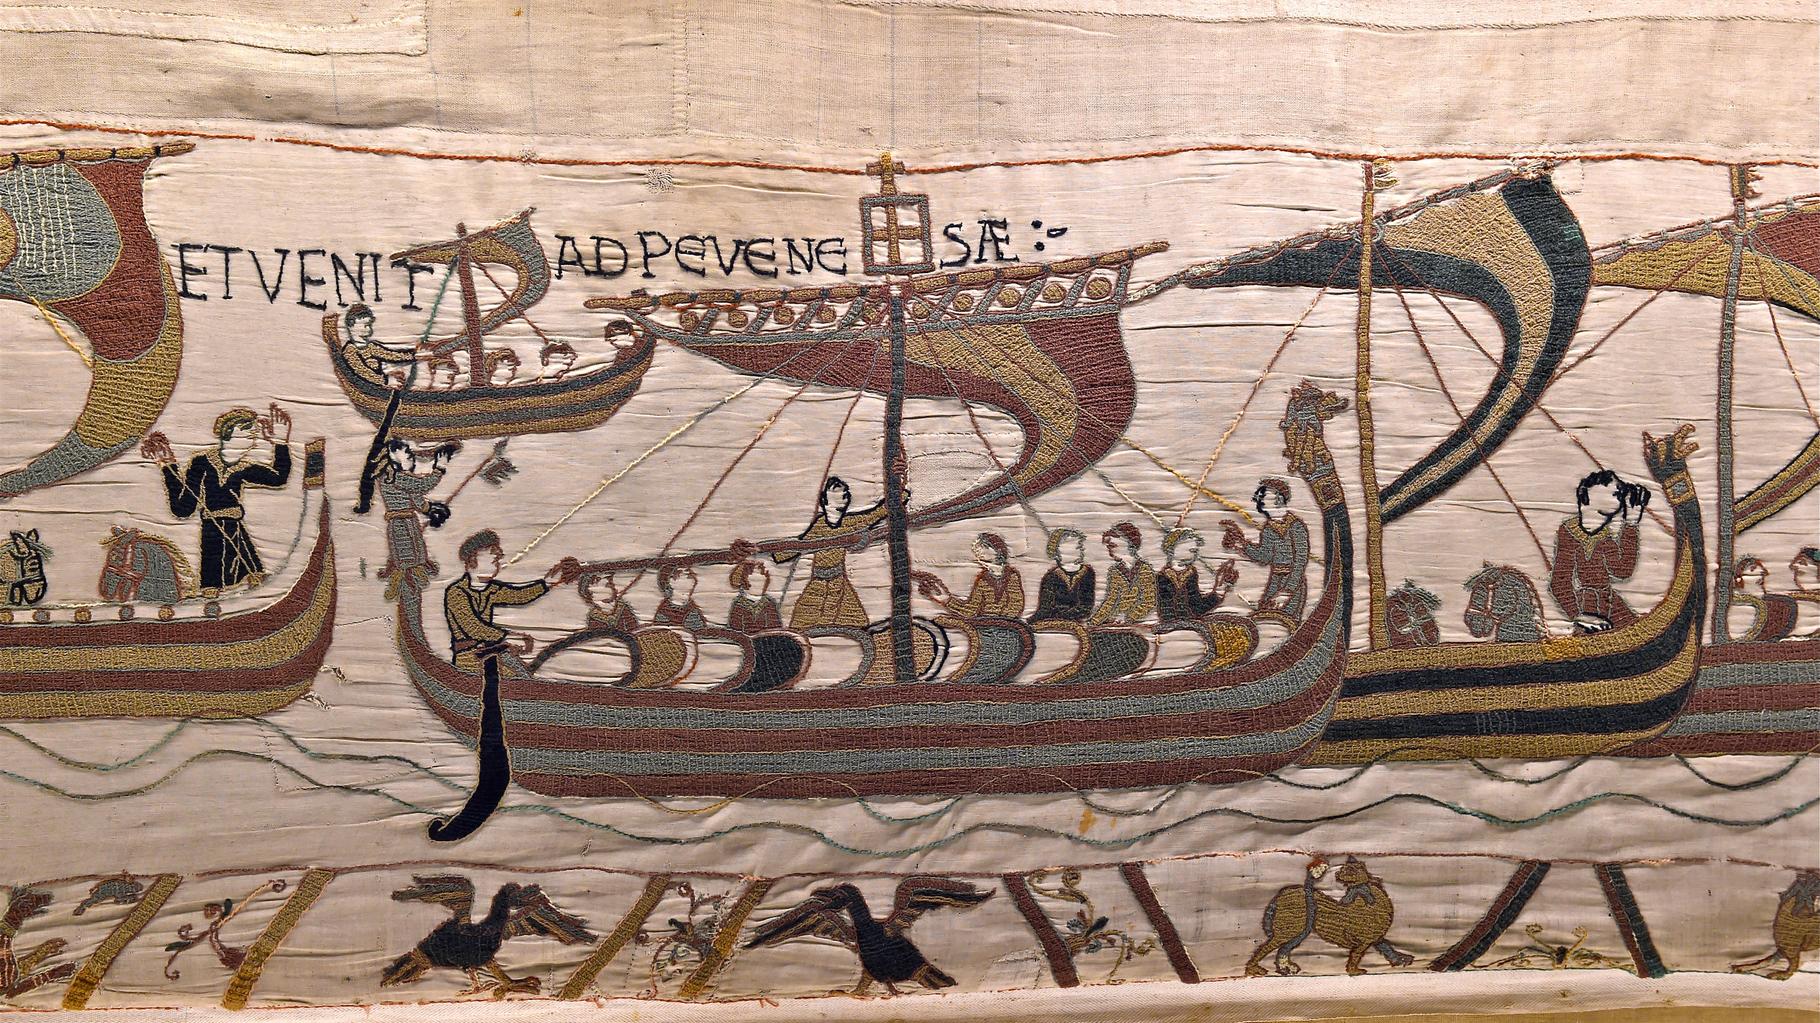 ET VENIT AD PEVENESÆ :-